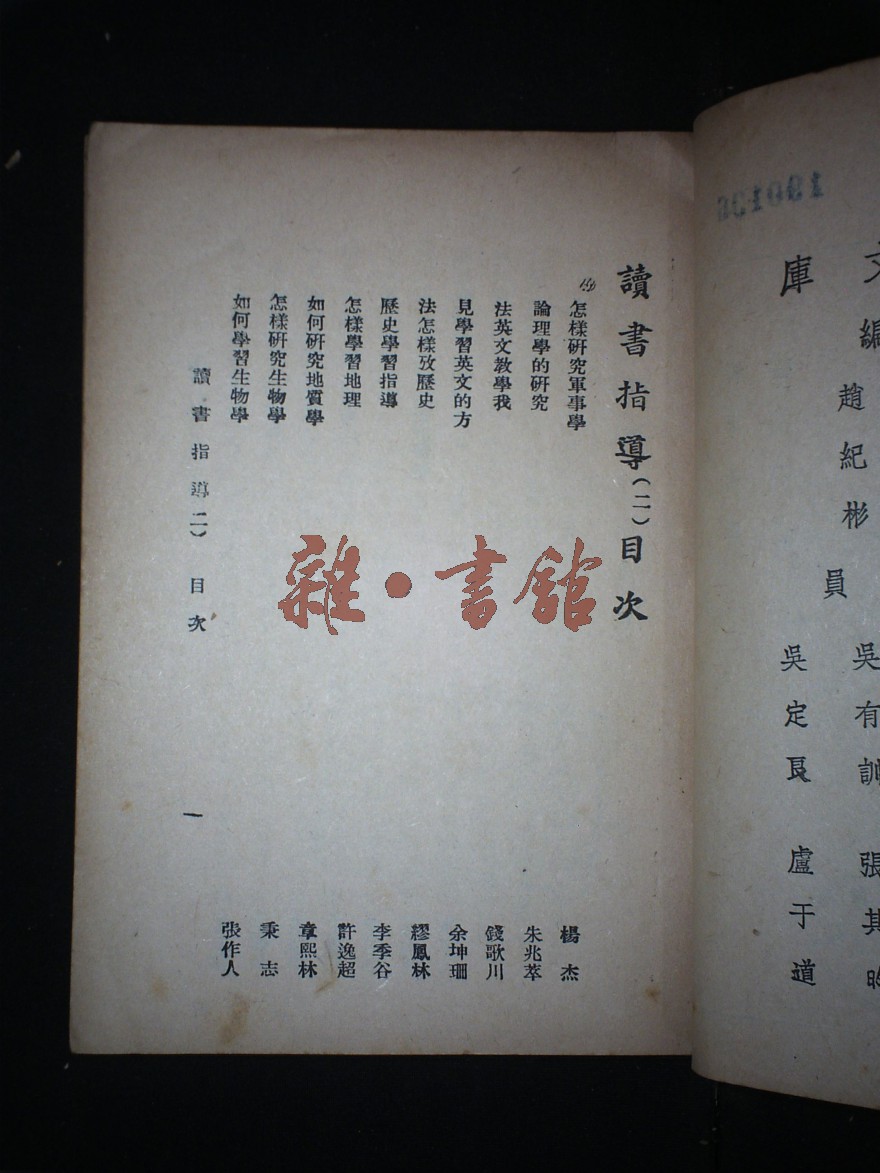 讀書指導(二)目次
怎樣研究軍事學 楊杰
論理學的研究 朱兆萃
法英文教學我 錢歌川
見學習英文的方 余坤珊
法怎樣攷歷史 繆鳳林
歷史學習指導 李季谷
怎樣學習地理 許逸超
如何研究地質學 章熙林
怎樣研究生物學 秉志
如何學習生物學 張作人
讀書指導(二) 目次
一
雜·書館
文
編
趙紀彬
庫
員
吳有訓 張其昀
吳定良 盧于道